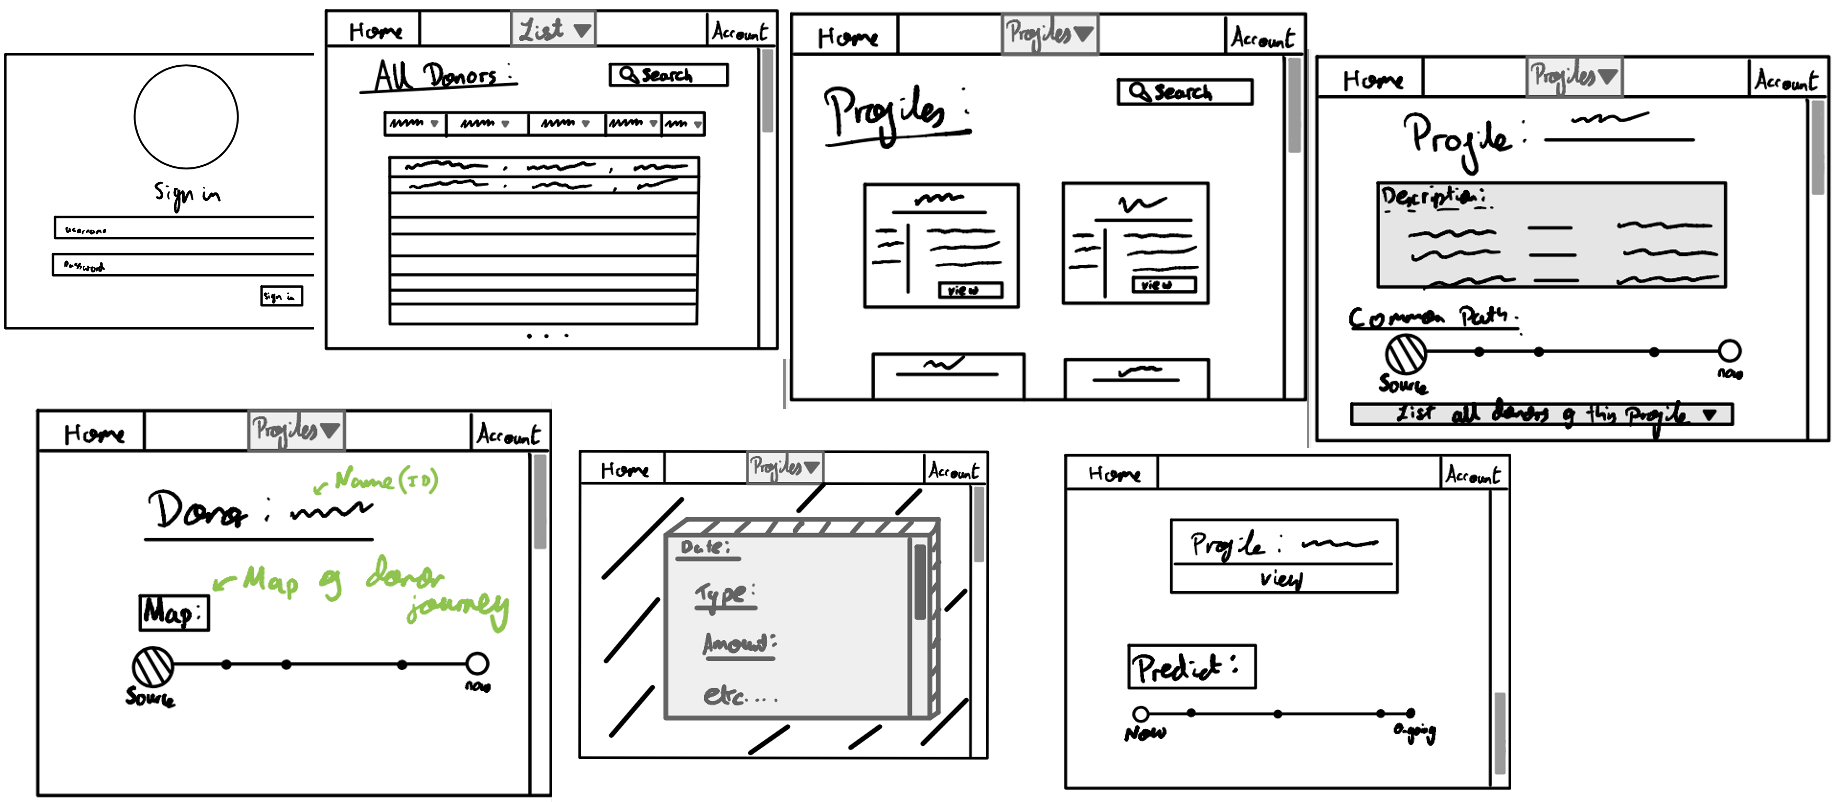 Sign in
Username
Password
Sign in
Home List ▼ Account
All Donors:
Search
. . .
Home Profiles ▼ Account
Profiles:
Search
view
view
Home Profiles ▼ Account
Profile:
Description:
Common Path:
Source
now
List all donors of this Profile ▼
Home Profiles ▼ Account
Name (ID)
Donor:
Map of donor
journey
Map:
Source
now
Home Profiles ▼ Account
Date:
Type:
Amount:
etc....
Home Account
Profile:
view
Predict:
Now
Ongoing